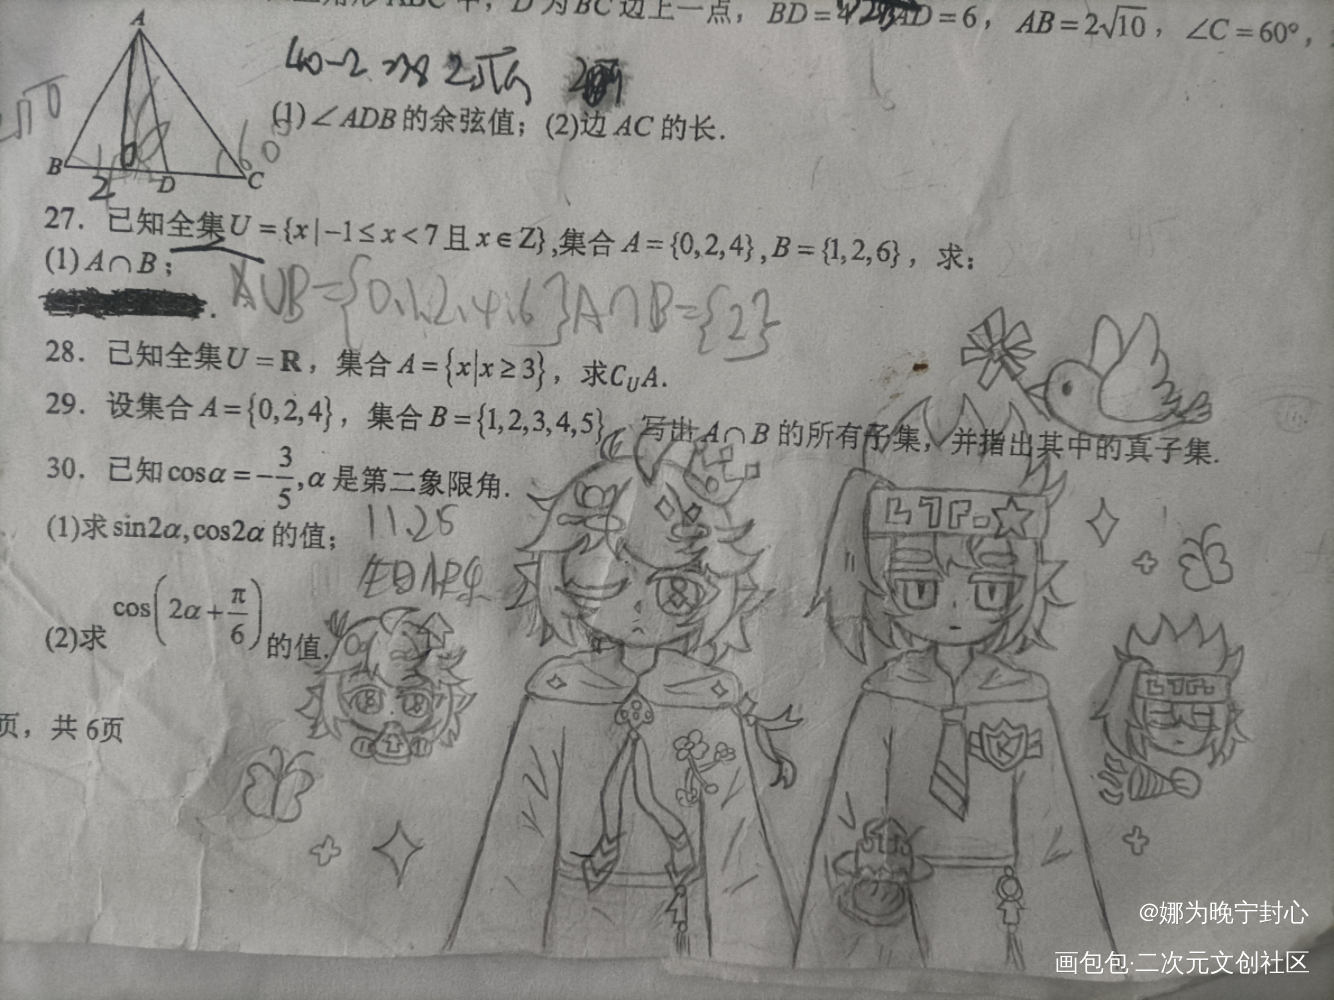 ABC 中，D 为 BC 边上一点，BD=4 AD=6，AB=2√10，∠C=60°，
A
B
D
C
2
60°
(1)∠ADB的余弦值；(2)边AC的长.
27．已知全集U={x|-1≤x<7且x∈Z},集合A={0,2,4},B={1,2,6}，求：
(1)A∩B；
A∪B={0,1,2,4,6}A∩B={2}
28．已知全集U=R，集合A={x|x≥3}，求C_U A.
29．设集合A={0,2,4}，集合B={1,2,3,4,5}，写出A∩B的所有子集，并指出其中的真子集.
30．已知cosα=-3/5,α是第二象限角.
(1)求sin2α,cos2α的值；
11.25
生日
(2)求cos(2α+π/6)的值.
页，共6页
K
@娜为晚宁封心
画包包·二次元文创社区